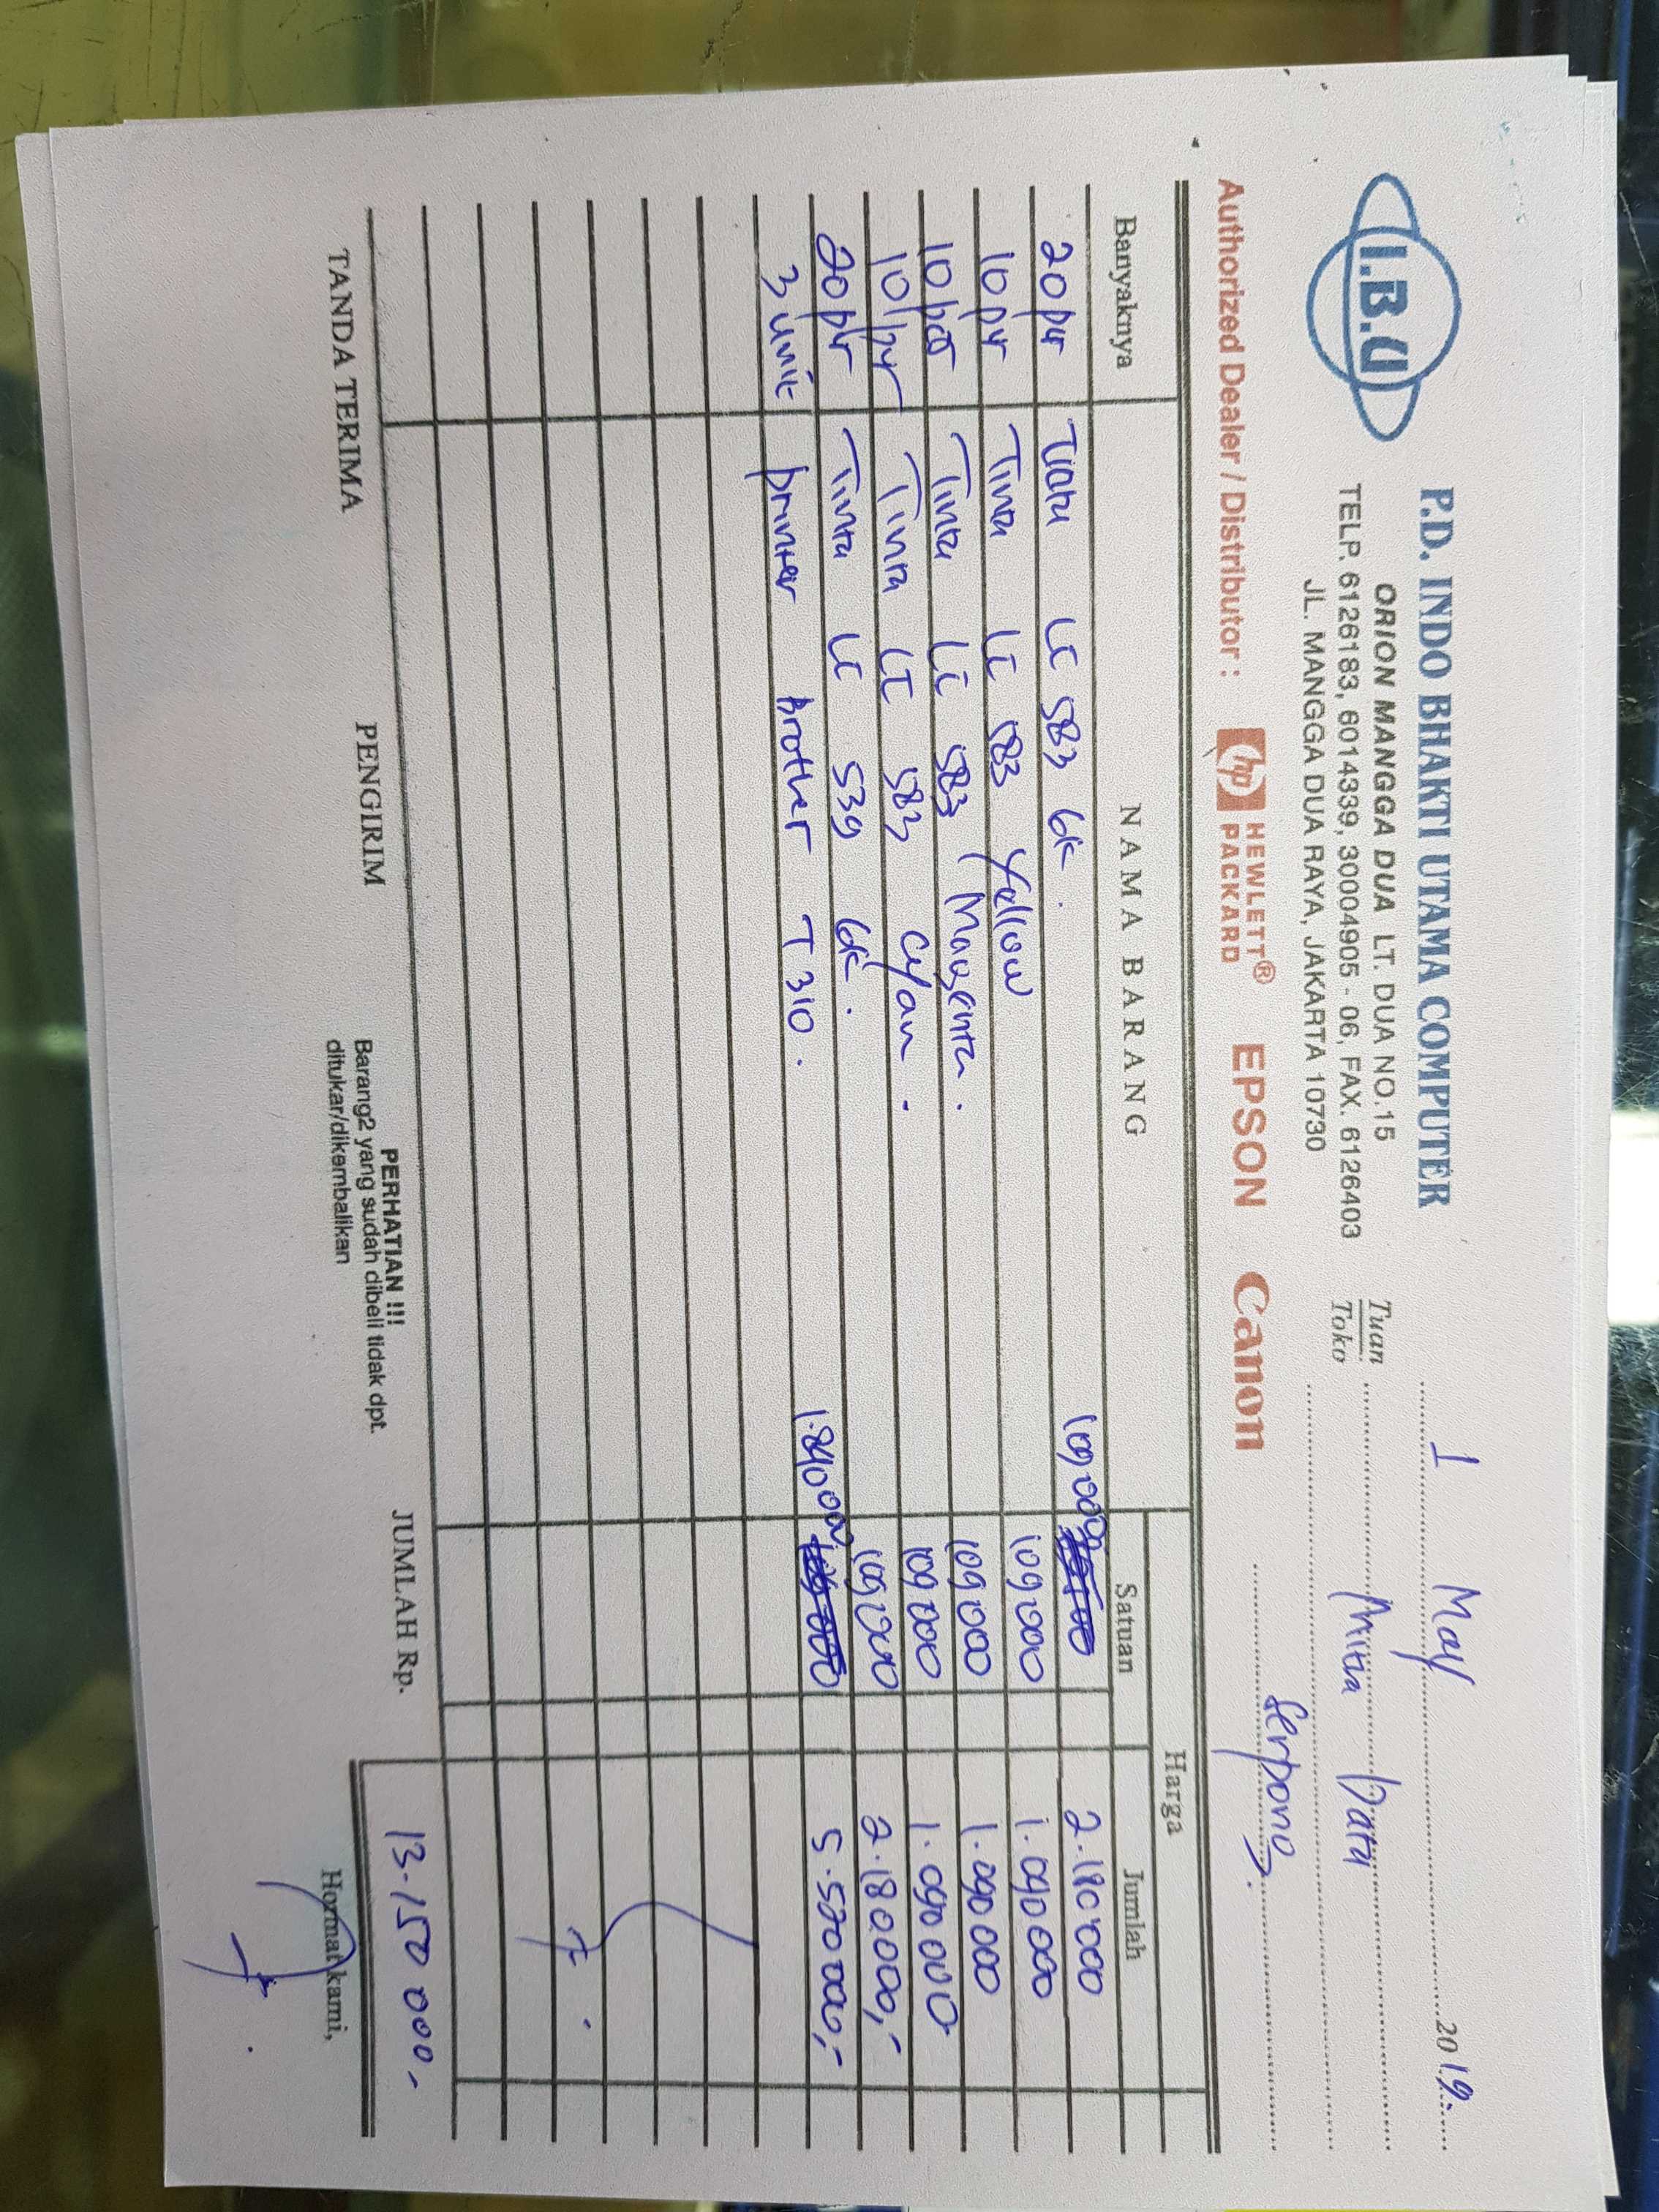 I.B.U
P.D. INDO BHAKTI UTAMA COMPUTER
ORION MANGGA DUA LT. DUA NO.15
TELP. 6126183, 6014339, 30004905 - 06, FAX. 6126403
JL. MANGGA DUA RAYA, JAKARTA 10730
1 May 2019
Tuan
Toko
Mitra Data
Serpong
Authorized Dealer / Distributor : hp HEWLETT® PACKARD EPSON Canon
Banyaknya NAMA BARANG Harga
Satuan Jumlah
20 pcs Tinta LC 583 bk. 109000 2.180000
10 pcs Tinta LC 583 Yellow 109000 1.090000
10 pcs Tinta LC 583 Magenta. 109000 1.090000
10 pcs Tinta LC 583 Cyan. 109000 1.090000
20 pcs Tinta LC 539 bk. 109000 2.180000,-
3 unit printer brother T310. 1.840000 5.520000,-
JUMLAH Rp. 13.150 000.-
TANDA TERIMA PENGIRIM
PERHATIAN !!!
Barang2 yang sudah dibeli tidak dpt.
ditukar/dikembalikan
Hormat kami,